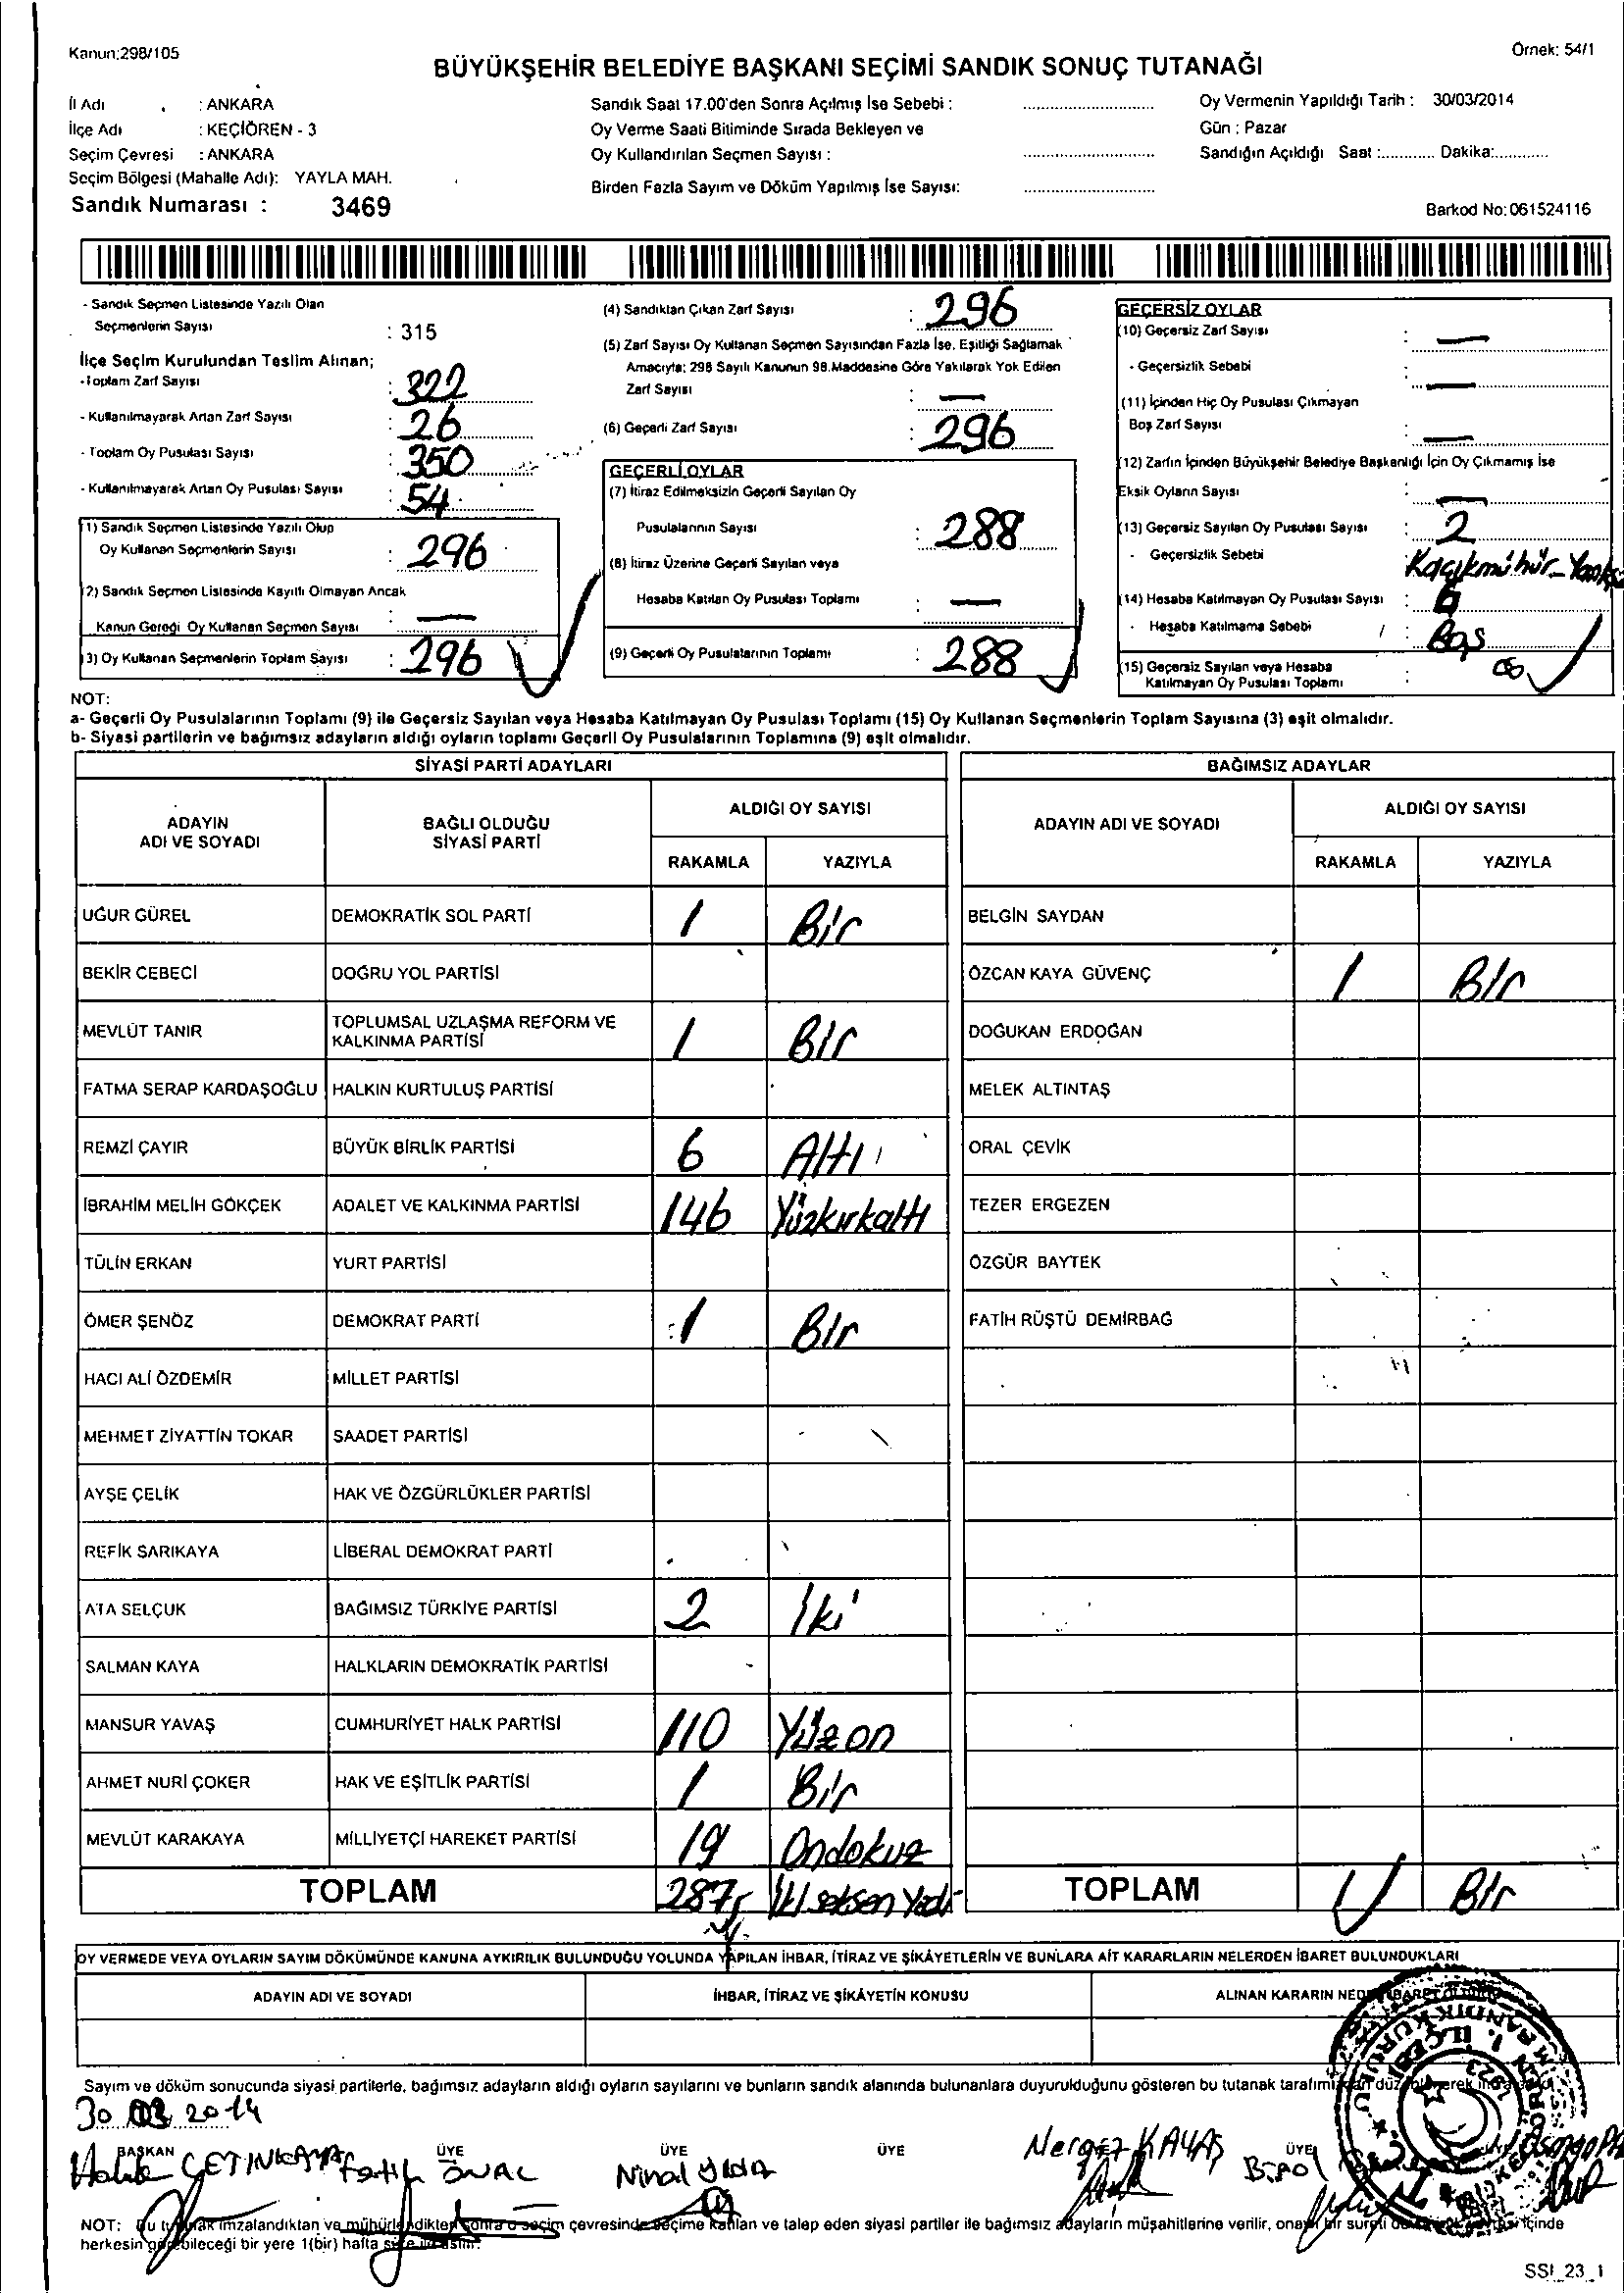 Kanun:298/105
Örnek: 54/1
BÜYÜKŞEHİR BELEDİYE BAŞKANI SEÇİMİ SANDIK SONUÇ TUTANAĞI
İl Adı : ANKARA
İlçe Adı : KEÇİÖREN - 3
Seçim Çevresi : ANKARA
Seçim Bölgesi (Mahalle Adı): YAYLA MAH.
Sandık Numarası : 3469
Sandık Saat 17.00'den Sonra Açılmış İse Sebebi :
Oy Verme Saati Bitiminde Sırada Bekleyen ve
Oy Kullandırılan Seçmen Sayısı :
Birden Fazla Sayım ve Döküm Yapılmış İse Sayısı:
Oy Vermenin Yapıldığı Tarih : 30/03/2014
Gün : Pazar
Sandığın Açıldığı Saat :............ Dakika:............
Barkod No: 061524116
- Sandık Seçmen Listesinde Yazılı Olan
Seçmenlerin Sayısı : 315
İlçe Seçim Kurulundan Teslim Alınan;
- Toplam Zarf Sayısı : 322
- Kullanılmayarak Artan Zarf Sayısı : 26
- Toplam Oy Pusulası Sayısı : 350
- Kullanılmayarak Artan Oy Pusulası Sayısı : 54
(1) Sandık Seçmen Listesinde Yazılı Olup
Oy Kullanan Seçmenlerin Sayısı : 296
(2) Sandık Seçmen Listesinde Kayıtlı Olmayan Ancak
Kanun Gereği Oy Kullanan Seçmen Sayısı : —
(3) Oy Kullanan Seçmenlerin Toplam Sayısı : 296
(4) Sandıktan Çıkan Zarf Sayısı : 296
(5) Zarf Sayısı Oy Kullanan Seçmen Sayısından Fazla İse, Eşitliği Sağlamak
Amacıyla; 298 Sayılı Kanunun 98.Maddesine Göre Yakılarak Yok Edilen
Zarf Sayısı : —
(6) Geçerli Zarf Sayısı : 296
GEÇERLİ OYLAR
(7) İtiraz Edilmeksizin Geçerli Sayılan Oy
Pusulalarının Sayısı : 288
(8) İtiraz Üzerine Geçerli Sayılan veya
Hesaba Katılan Oy Pusulası Toplamı : —
(9) Geçerli Oy Pusulalarının Toplamı : 288
GEÇERSİZ OYLAR
(10) Geçersiz Zarf Sayısı : —
- Geçersizlik Sebebi : —
(11) İçinden Hiç Oy Pusulası Çıkmayan
Boş Zarf Sayısı : —
(12) Zarfın İçinden Büyükşehir Belediye Başkanlığı İçin Oy Çıkmamış İse
Eksik Oyların Sayısı : —
(13) Geçersiz Sayılan Oy Pusulası Sayısı : 2
- Geçersizlik Sebebi : Kaçıkmühür -
(14) Hesaba Katılmayan Oy Pusulası Sayısı : 6
- Hesaba Katılmama Sebebi : Boş
(15) Geçersiz Sayılan veya Hesaba
Katılmayan Oy Pusulası Toplamı : 8
NOT:
a- Geçerli Oy Pusulalarının Toplamı (9) ile Geçersiz Sayılan veya Hesaba Katılmayan Oy Pusulası Toplamı (15) Oy Kullanan Seçmenlerin Toplam Sayısına (3) eşit olmalıdır.
b- Siyasi partilerin ve bağımsız adayların aldığı oyların toplamı Geçerli Oy Pusulalarının Toplamına (9) eşit olmalıdır.
SİYASİ PARTİ ADAYLARI
BAĞIMSIZ ADAYLAR
ADAYIN
ADI VE SOYADI
BAĞLI OLDUĞU
SİYASİ PARTİ
ALDIĞI OY SAYISI
RAKAMLA YAZIYLA
ADAYIN ADI VE SOYADI
ALDIĞI OY SAYISI
RAKAMLA YAZIYLA
UĞUR GÜREL DEMOKRATİK SOL PARTİ 1 Bir BELGİN SAYDAN
BEKİR CEBECİ DOĞRU YOL PARTİSİ ÖZCAN KAYA GÜVENÇ 1 Bir
MEVLÜT TANIR TOPLUMSAL UZLAŞMA REFORM VE
KALKINMA PARTİSİ 1 Bir DOĞUKAN ERDOĞAN
FATMA SERAP KARDAŞOĞLU HALKIN KURTULUŞ PARTİSİ MELEK ALTINTAŞ
REMZİ ÇAYIR BÜYÜK BİRLİK PARTİSİ 6 Altı ORAL ÇEVİK
İBRAHİM MELİH GÖKÇEK ADALET VE KALKINMA PARTİSİ 146 Yüzkırkaltı TEZER ERGEZEN
TÜLİN ERKAN YURT PARTİSİ ÖZGÜR BAYTEK
ÖMER ŞENÖZ DEMOKRAT PARTİ 1 Bir FATİH RÜŞTÜ DEMİRBAĞ
HACI ALİ ÖZDEMİR MİLLET PARTİSİ
MEHMET ZİYATTİN TOKAR SAADET PARTİSİ
AYŞE ÇELİK HAK VE ÖZGÜRLÜKLER PARTİSİ
REFİK SARIKAYA LİBERAL DEMOKRAT PARTİ
ATA SELÇUK BAĞIMSIZ TÜRKİYE PARTİSİ 2 İki
SALMAN KAYA HALKLARIN DEMOKRATİK PARTİSİ
MANSUR YAVAŞ CUMHURİYET HALK PARTİSİ 110 Yüzon
AHMET NURİ ÇOKER HAK VE EŞİTLİK PARTİSİ 1 Bir
MEVLÜT KARAKAYA MİLLİYETÇİ HAREKET PARTİSİ 19 Ondokuz
TOPLAM 287 İki seksen Yedi TOPLAM Bir
OY VERMEDE VEYA OYLARIN SAYIM DÖKÜMÜNDE KANUNA AYKIRILIK BULUNDUĞU YOLUNDA YAPILAN İHBAR, İTİRAZ VE ŞİKÂYETLERİN VE BUNLARA AİT KARARLARIN NELERDEN İBARET BULUNDUKLARI
ADAYIN ADI VE SOYADI İHBAR, İTİRAZ VE ŞİKÂYETİN KONUSU ALINAN KARARIN
Sayım ve döküm sonucunda siyasi partilerle, bağımsız adayların aldığı oyların sayılarını ve bunların sandık alanında bulunanlara duyurulduğunu gösteren bu tutanak
30 03 2014
BAŞKAN ÜYE ÜYE ÜYE ÜYE
ÇETİNKAYA Fatih ÖNAL Nergez KAYAŞ
NOT: Bu tutanak imzalandıktan ve mühürlendikten sonra o seçim çevresinde seçime katılan ve talep eden siyasi partiler ile bağımsız adayların müşahitlerine verilir, onaylı bir sureti içinde
herkesin görebileceği bir yere 1(bir) hafta süre ile asılır.
SSI_23_1